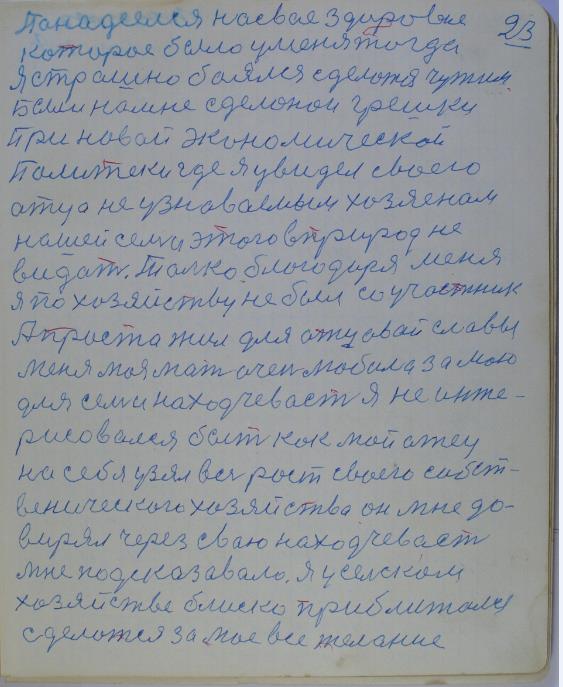 Понадеелся насвае здировье 23
которое было уменятогда
я страшно боялся сделотя чужим
были намне сделоной грешки
При новай экономической
Политеки где яувидел своего
отца не узноваемым хозяеном
нашей семи этого вприрод не
видат. Толко благодиря меня
япо хозяйству не был соучастник
Апроста жил для отцовай славы
меня моя мат очен любила за мою
для семи находчеваст я не инте-
рисовался быт как мой отец
на себя узял вся рост своего собст-
венического хозяйства он мне до-
вирял через сваю находчеваст
мне подсказавало. я уселском
хозяйстве блиско приблитолся
сделотся за мое все желание